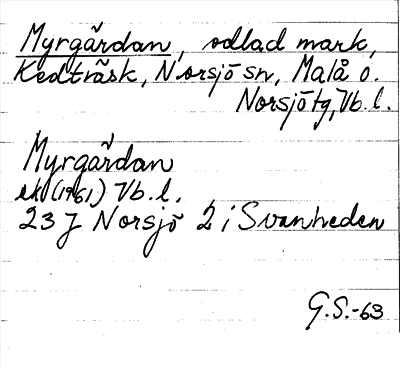 Myrgårdan, odlad mark,
Kedträsk, Norsjö sn, Malå o.
Norsjö tg, Vb. l.
Myrgårdan
ek (1961) Vb. l.
23 J Norsjö 2 i Svanheden
G.S.-63